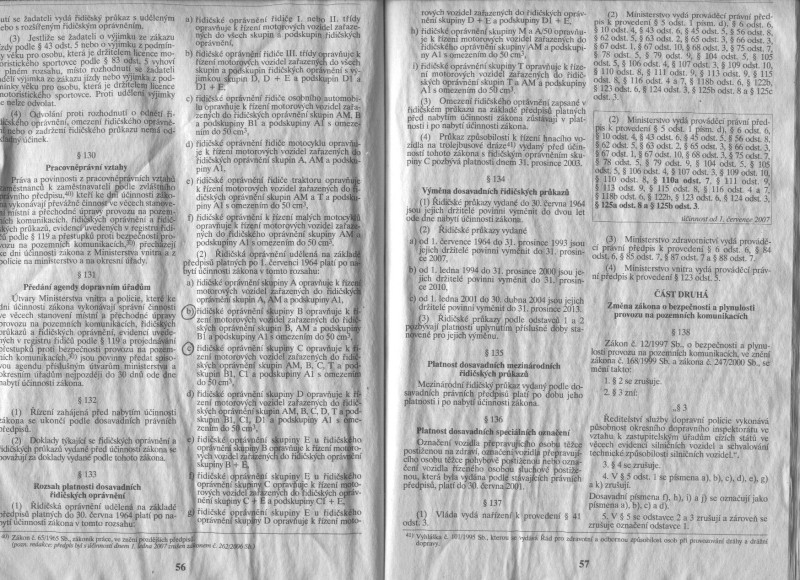 utí se žadateli vydá řidičský průkaz s uděleným
nebo s rozšířeným řidičským oprávněním.
(3) Jestliže se žadateli o výjimku ze zákazu
jízdy podle § 43 odst. 5 nebo o výjimku z podmín-
y věku pro osobu, která je držitelem licence mo-
toristického sportovce podle § 83 odst. 5 vyhoví
plném rozsahu, místo rozhodnutí se žadateli
udělí výjimka ze zákazu jízdy nebo výjimka z pod-
mínky věku pro osobu, která je držitelem licence
motoristického sportovce. Proti udělení výjimky
nelze odvolat.
(4) Odvolání proti rozhodnutí o odnětí ři-
dičského oprávnění, omezení řidičského oprávnění
nebo o zadržení řidičského průkazu nemá od-
kladný účinek.
§ 130
Pracovněprávní vztahy
Práva a povinnosti z pracovněprávních vztahů
zaměstnanců k zaměstnavateli podle zvláštního
právního předpisu,40) kteří ke dni účinnosti záko-
na vykonávají převážně činnost ve věcech stanove-
ní místní a přechodné úpravy provozu na pozem-
ních komunikacích, řidičských oprávnění a řidič-
ských průkazů, evidencí uvedených v registru řidi-
čů podle § 119 a přestupků proti bezpečnosti pro-
vozu na pozemních komunikacích,30) přecházejí
ke dni účinnosti zákona z Ministerstva vnitra a z
policie na ministerstvo a na okresní úřady.
§ 131
Předání agendy dopravním úřadům
Útvary Ministerstva vnitra a policie, které ke
dni účinnosti zákona vykonávají správní činnost
ve věcech stanovení místní a přechodné úpravy
provozu na pozemních komunikacích, řidičských
průkazů a řidičských oprávnění, evidencí uvede-
ných v registru řidičů podle § 119 a projednávání
přestupků proti bezpečnosti provozu na pozem-
ních komunikacích,30) jsou povinny předat spiso-
vou agendu příslušným útvarům ministerstva a
okresním úřadům nejpozději do 30 dnů ode dne
nabytí účinnosti zákona.
§ 132
(1) Řízení zahájená před nabytím účinnosti
zákona se ukončí podle dosavadních právních
předpisů.
(2) Doklady týkající se řidičských oprávnění a
řidičských průkazů vydané před účinností zákona se
považují za doklady vydané podle tohoto zákona.
§ 133
Rozsah platnosti dosavadních
řidičských oprávnění
(1) Řidičská oprávnění udělená na základě
předpisů platných do 30. června 1964 platí po na-
bytí účinnosti zákona v tomto rozsahu:
a) řidičské oprávnění řidiče I. nebo II. třídy
opravňuje k řízení motorových vozidel zařaze-
ných do všech skupin a podskupin řidičských
oprávnění,
b) řidičské oprávnění řidiče III. třídy opravňuje k
řízení motorových vozidel zařazených do všech
skupin a podskupin řidičských oprávnění s vý-
jimkou skupin D, D + E a podskupin D1 a
D1 + E,
c) řidičské oprávnění řidiče osobního automobi-
lu opravňuje k řízení motorových vozidel zařa-
zených do řidičských oprávnění skupin AM, B
a podskupin B1 a podskupiny A1 s omeze-
ním do 50 cm3,
d) řidičské oprávnění řidiče motocyklu opravňu-
je k řízení motorových vozidel zařazených do
řidičských oprávnění skupin A, AM a podsku-
piny A1,
e) řidičské oprávnění řidiče traktoru opravňuje
k řízení motorových vozidel zařazených do ři-
dičských oprávnění skupin AM a T a podsku-
piny A1 s omezením do 50 cm3,
f) řidičské oprávnění k řízení malých motocyklů
opravňuje k řízení motorových vozidel zařaze-
ných do řidičského oprávnění skupiny AM a
podskupiny A1 s omezením do 50 cm3.
(2) Řidičská oprávnění udělená na základě
předpisů platných po 1. červenci 1964 platí po na-
bytí účinnosti zákona v tomto rozsahu:
a) řidičské oprávnění skupiny A opravňuje k řízení
motorových vozidel zařazených do řidičských
oprávnění skupin A, AM a podskupiny A1,
b) řidičské oprávnění skupiny B opravňuje k ří-
zení motorových vozidel zařazených do řidič-
ských oprávnění skupin B, AM a podskupiny
B1 a podskupiny A1 s omezením do 50 cm3,
c) řidičské oprávnění skupiny C opravňuje k ří-
zení motorových vozidel zařazených do řidič-
ských oprávnění skupin AM, B, C, T a pod-
skupin B1, C1 a podskupiny A1 s omezením
do 50 cm3,
d) řidičské oprávnění skupiny D opravňuje k ří-
zení motorových vozidel zařazených do řidič-
ských oprávnění skupin AM, B, C, D, T a pod-
skupin B1, C1, D1 a podskupiny A1 s ome-
zením do 50 cm3,
e) řidičské oprávnění skupiny E u řidičského
oprávnění skupiny B opravňuje k řízení moto-
rových vozidel zařazených do řidičských opráv-
nění skupiny B + E,
f) řidičské oprávnění skupiny E u řidičského
oprávnění skupiny C opravňuje k řízení moto-
rových vozidel zařazených do řidičských opráv-
nění skupiny C + E a podskupiny C1 + E,
g) řidičské oprávnění skupiny E u řidičského
oprávnění skupiny D opravňuje k řízení moto-
40) Zákon č. 65/1965 Sb., zákoník práce, ve znění pozdějších předpisů.
(pozn. redakce: předpis byl s účinností dnem 1. ledna 2007 zrušen zákonem č. 262/2006 Sb.)
56
rových vozidel zařazených do řidičských opráv-
nění skupiny D + E a podskupiny D1 + E,
h) řidičské oprávnění skupiny M a A/50 opravňu-
je k řízení motorových vozidel zařazených do
řidičského oprávnění skupiny AM a podskupi-
ny A1 s omezením do 50 cm3,
i) řidičské oprávnění skupiny T opravňuje k říze-
ní motorových vozidel zařazených do řidič-
ských oprávnění skupin T a AM a podskupiny
A1 s omezením do 50 cm3.
(3) Omezení řidičského oprávnění zapsané v
řidičském průkazu na základě předpisů platných
před nabytím účinnosti zákona zůstávají v plat-
nosti i po nabytí účinnosti zákona.
(4) Průkaz způsobilosti k řízení hnacího vo-
zidla na trolejbusové dráze41) vydaný před účin-
ností tohoto zákona s řidičským oprávněním sku-
piny C pozbývá platnosti dnem 31. prosince 2003.
§ 134
Výměna dosavadních řidičských průkazů
(1) Řidičské průkazy vydané do 30. června 1964
jsou jejich držitelé povinni vyměnit do dvou let
ode dne nabytí účinnosti zákona.
(2) Řidičské průkazy vydané
a) od 1. července 1964 do 31. prosince 1993 jsou
jejich držitelé povinni vyměnit do 31. prosin-
ce 2007,
b) od 1. ledna 1994 do 31. prosince 2000 jsou je-
jich držitelé povinni vyměnit do 31. prosince
2010,
c) od 1. ledna 2001 do 30. dubna 2004 jsou jejich
držitelé povinni vyměnit do 31. prosince 2013.
(3) Řidičské průkazy podle odstavců 1 a 2
pozbývají platnosti uplynutím příslušné doby sta-
novené pro jejich výměnu.
§ 135
Platnost dosavadních mezinárodních
řidičských průkazů
Mezinárodní řidičský průkaz vydaný podle do-
savadních právních předpisů platí po dobu jeho
platnosti i po nabytí účinnosti zákona.
§ 136
Platnost dosavadních speciálních označení
Označení vozidla přepravujícího osobu těžce
postiženou na zdraví, označení vozidla přepravují-
cího osobu těžce pohybově postiženou nebo ozna-
čení vozidla řízeného osobou sluchově postiže-
nou, která byla vydána podle stávajících právních
předpisů, platí do 30. dubna 2001.
§ 137
(1) Vláda vydá nařízení k provedení § 41
odst. 3.
(2) Ministerstvo vydá prováděcí právní před-
pis k provedení § 5 odst. 1 písm. d), § 6 odst. 6,
§ 10 odst. 4, § 43 odst. 6, § 45 odst. 5, § 56 odst. 8,
§ 62 odst. 5, § 63 odst. 2, § 65 odst. 3, § 66 odst. 3,
§ 67 odst. 1, § 67 odst. 10, § 68 odst. 3, § 75 odst. 7,
§ 78 odst. 5, § 79 odst. 9, § 104 odst. 5, § 105
odst. 5, § 106 odst. 4, § 107 odst. 3, § 109 odst. 10,
§ 110 odst. 8, § 111 odst. 9, § 113 odst. 9, § 115
odst. 8, § 116 odst. 4 a 7, § 118b odst. 6, § 122b,
§ 123 odst. 6, § 124 odst. 3, § 125b odst. 8 a § 125c
odst. 3.
(2) Ministerstvo vydá prováděcí právní před-
pis k provedení § 5 odst. 1 písm. d), § 6 odst. 6,
§ 10 odst. 4, § 43 odst. 6, § 45 odst. 5, § 56 odst. 8,
§ 62 odst. 5, § 63 odst. 2, § 65 odst. 3, § 66 odst. 3,
§ 67 odst. 1, § 67 odst. 10, § 68 odst. 3, § 75 odst. 7,
§ 78 odst. 5, § 79 odst. 9, § 104 odst. 5, § 105
odst. 5, § 106 odst. 4, § 107 odst. 3, § 109 odst. 10,
§ 110 odst. 8, § 110a odst. 7, § 111 odst. 9,
§ 113 odst. 9, § 115 odst. 8, § 116 odst. 4 a 7,
§ 118b odst. 6, § 122b, § 123 odst. 6, § 124 odst. 3,
§ 125a odst. 8 a § 125b odst. 3.
účinnost od 1. července 2007
(3) Ministerstvo zdravotnictví vydá provádě-
cí právní předpis k provedení § 6 odst. 6, § 84
odst. 6, § 85 odst. 7, § 87 odst. 7 a § 88 odst. 7.
(4) Ministerstvo vnitra vydá prováděcí práv-
ní předpis k provedení § 123 odst. 5.
ČÁST DRUHÁ
Změna zákona o bezpečnosti a plynulosti
provozu na pozemních komunikacích
§ 138
Zákon č. 12/1997 Sb., o bezpečnosti a plynu-
losti provozu na pozemních komunikacích, ve znění
zákona č. 168/1999 Sb. a zákona č. 247/2000 Sb., se
mění takto:
1. § 2 se zrušuje.
2. § 3 zní:
„§ 3
Ředitelství služby dopravní policie vykonává
působnost okresního dopravního inspektorátu ve
vztahu k zastupitelským úřadům cizích států ve
věcech evidencí silničních vozidel a schvalování
technické způsobilosti silničních vozidel.“.
3. § 4 se zrušuje.
4. V § 5 odst. 1 se písmena a), b), c), d), e), g)
a k) zrušují.
Dosavadní písmena f), h), i) a j) se označují jako
písmena a), b), c) a d).
5. V § 5 se odstavce 2 a 3 zrušují a zároveň se
zrušuje označení odstavce 1.
41) Vyhláška č. 101/1995 Sb., kterou se vydává Řád pro zdravotní a odbornou způsobilost osob při provozování dráhy a drážní
dopravy.
57